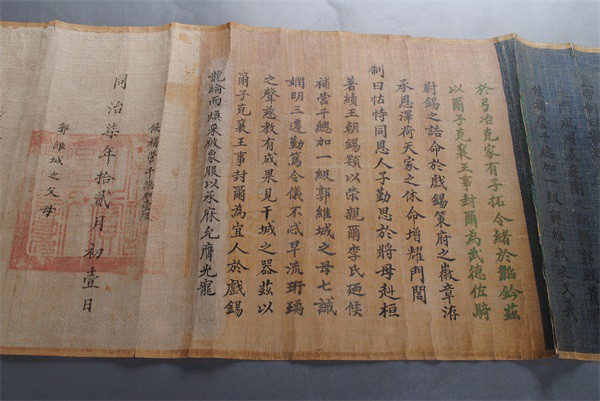 於弓冶克家有子拓令緒於韜鈐茲
以爾子克襄王事封爾為武德佐騎
尉錫之誥命於戲錫策府之徽章洊
承恩澤荷天家之休命增耀門閭
制曰怙恃同恩人子勤思於將母赳桓
著績王朝錫類以榮親爾李氏廼候
補營千總加一級郭維城之母七誡
嫻明三遷勤篤令儀不忒早流珩瑀
之聲慈教有成果見干城之器茲以
爾子克襄王事封爾為宜人於戲錫
龍綸而煥采被象服以承庥允膺光寵
候補營千總
同治柒年拾貳月初壹日
郭維城之父母